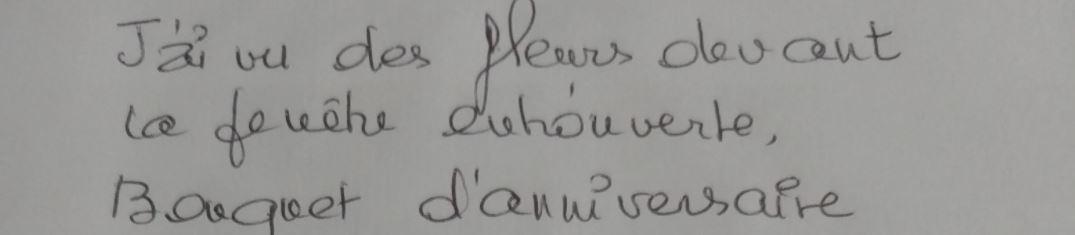 J'ai vu des fleurs devant
la fenêtre entr'ouverte,
Bouquet d'anniversaire